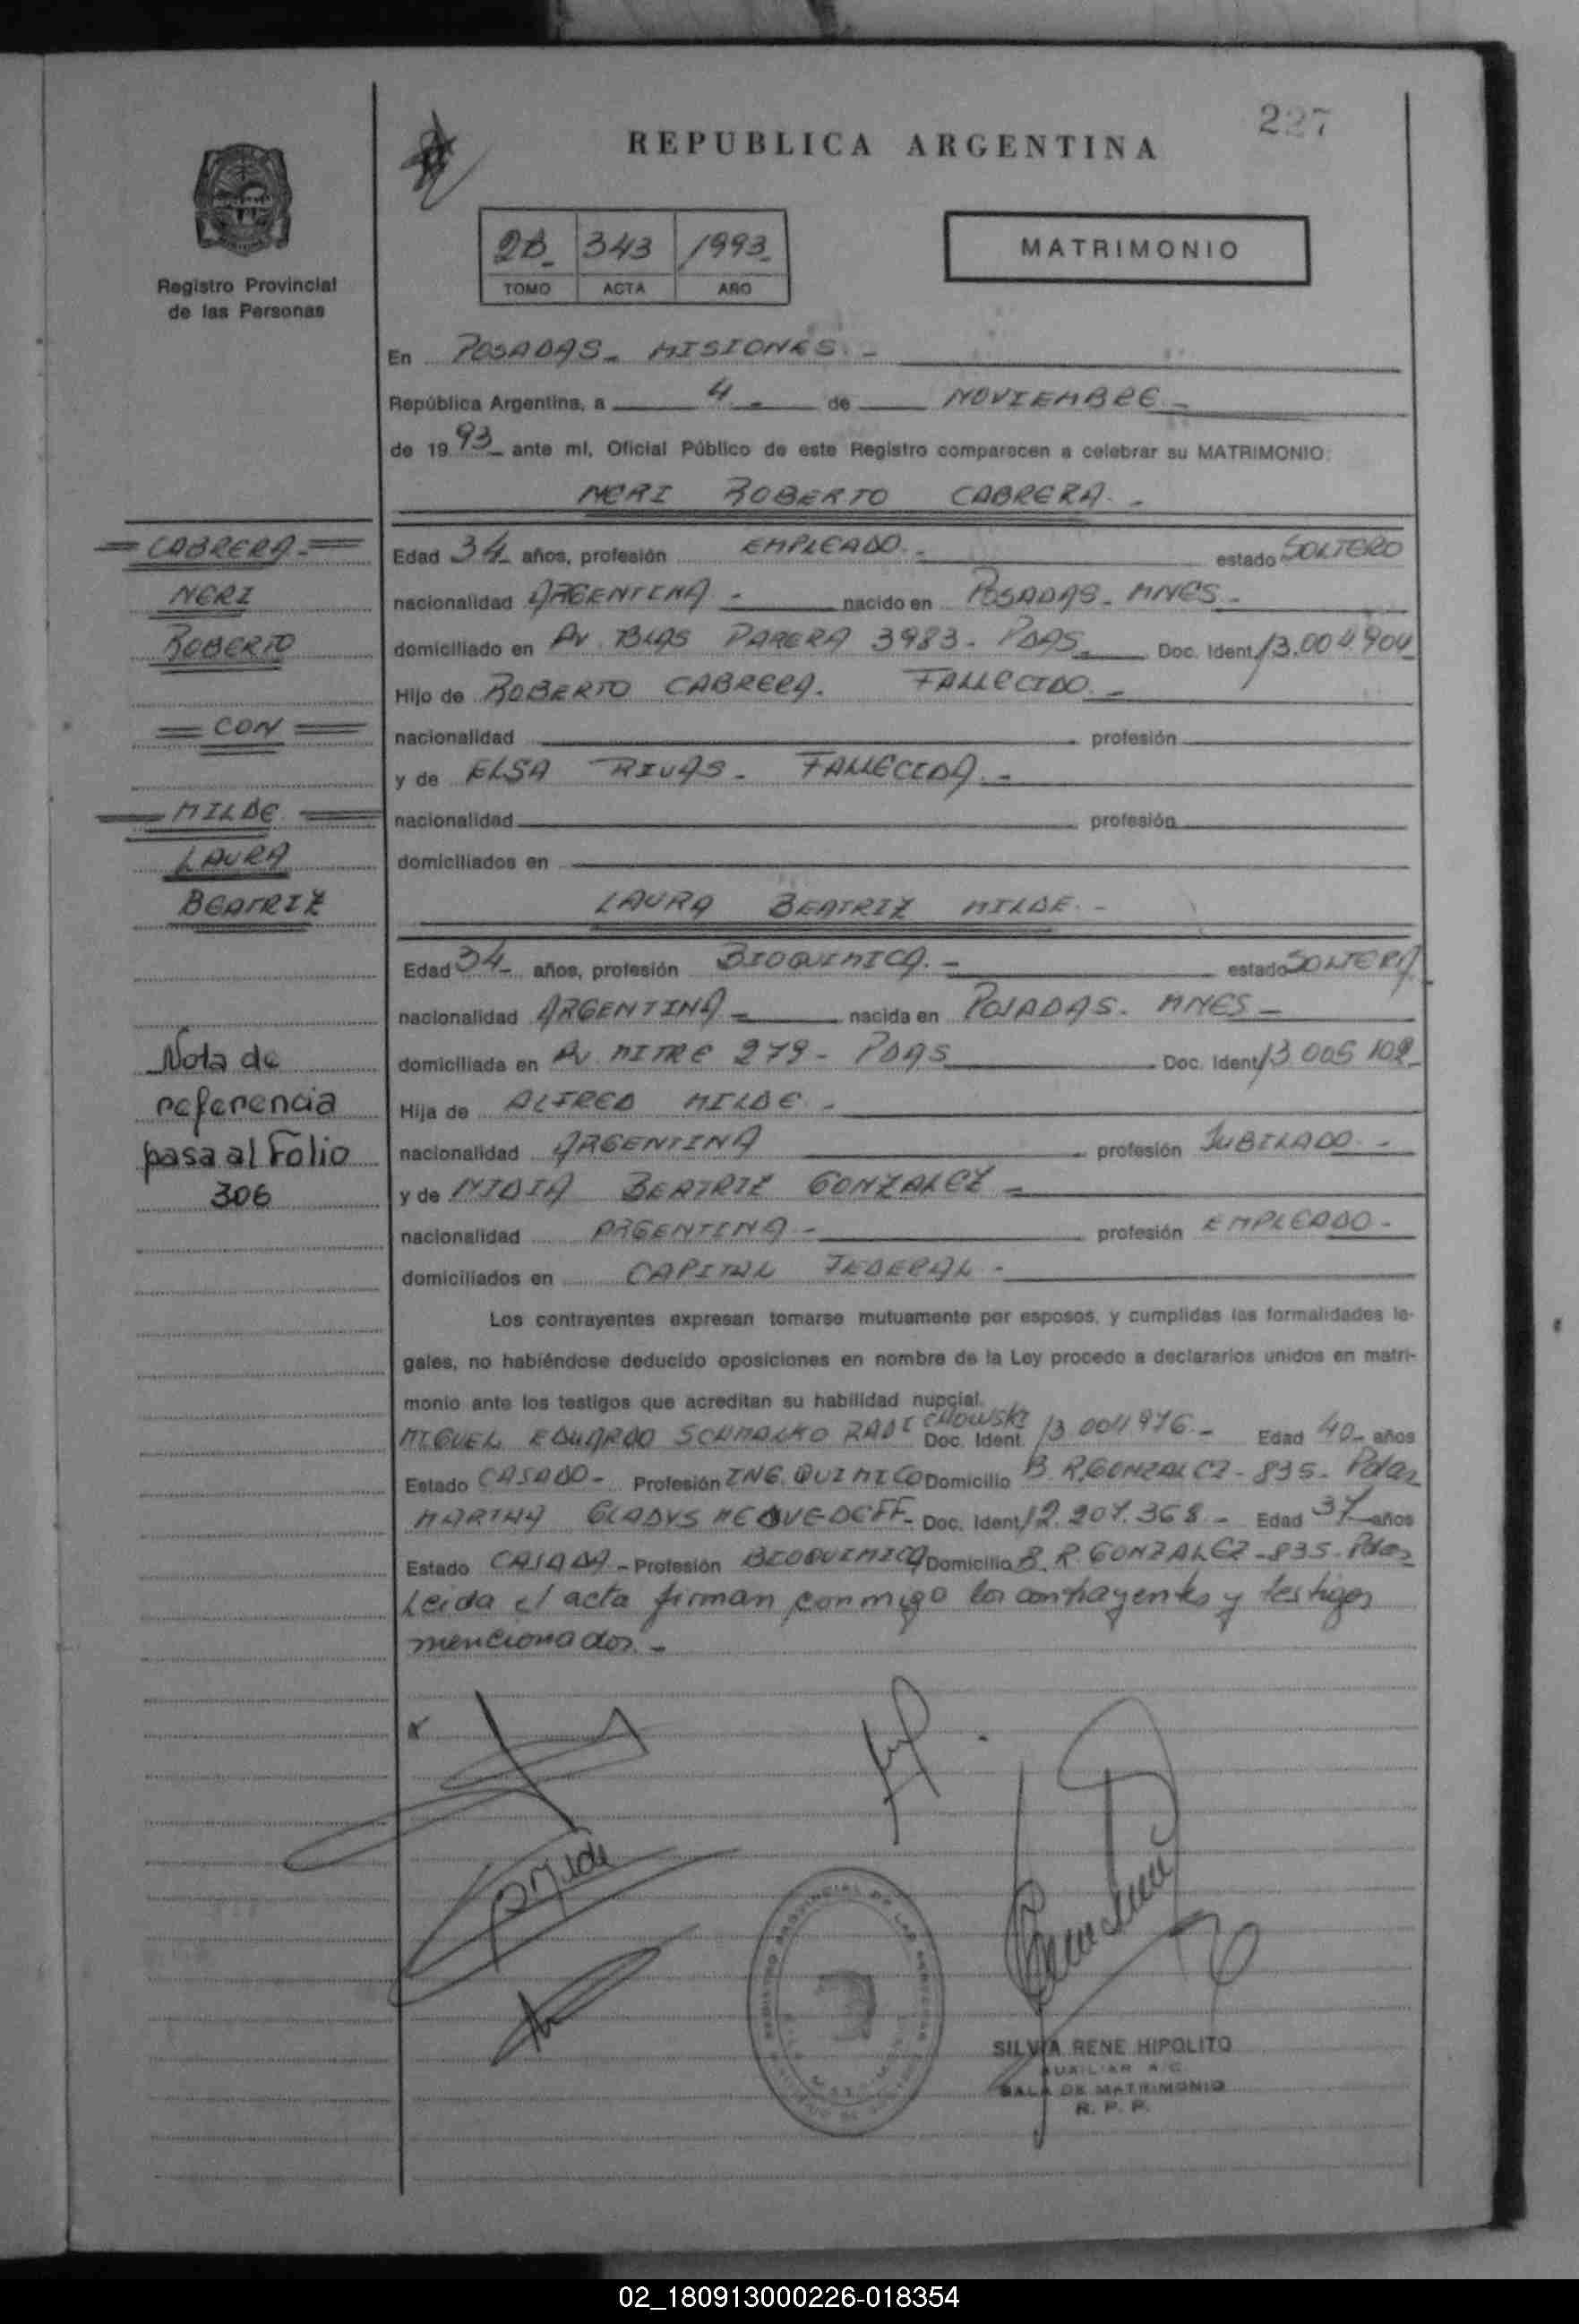 227
REPUBLICA ARGENTINA
Registro Provincial
de las Personas
2B 343 1993
TOMO ACTA AÑO
MATRIMONIO
En POSADAS - MISIONES. -
República Argentina, a 4 - de NOVIEMBRE -
de 1993 ante mí, Oficial Público de este Registro comparecen a celebrar su MATRIMONIO:
NERI ROBERTO CABRERA. -
= CABRERA =
NERI
ROBERTO
= CON =
MILDE
LAURA
BEATRIZ
Nota de
referencia
pasa al Folio
306
Edad 34 años, profesión EMPLEADO. - estado SOLTERO
nacionalidad ARGENTINA - nacido en POSADAS - MNES -
domiciliado en AV. BLAS PARERA 3983 - PDAS Doc. Ident. 13.004.904
Hijo de ROBERTO CABRERA. FALLECIDO. -
nacionalidad profesión
y de ELSA RIVAS - FALLECIDA. -
nacionalidad profesión
domiciliados en
LAURA BEATRIZ MILDE. -
Edad 34 años, profesión BIOQUIMICA. - estado SOLTERA
nacionalidad ARGENTINA - nacida en POSADAS - MNES -
domiciliada en AV. MITRE 279 - PDAS Doc. Ident. 13.005.102
Hija de ALFRED MILDE -
nacionalidad ARGENTINA profesión JUBILADO. -
y de NIDIA BEATRIZ GONZALEZ -
nacionalidad ARGENTINA - profesión EMPLEADO -
domiciliados en CAPITAL FEDERAL -
Los contrayentes expresan tomarse mutuamente por esposos, y cumplidas las formalidades le-
gales, no habiéndose deducido oposiciones en nombre de la Ley procedo a declararlos unidos en matri-
monio ante los testigos que acreditan su habilidad nupcial.
MIGUEL EDUARDO SCHMALKO RADICHOWSKI Doc. Ident. 13.004.976 - Edad 40 años
Estado CASADO - Profesión ING. QUIMICO Domicilio B. R. GONZALEZ - 835 - Pdas
MARTHA GLADYS MEDVEDEFF - Doc. Ident. 12.207.368 - Edad 37 años
Estado CASADA - Profesión BIOQUIMICA Domicilio B. R. GONZALEZ - 835 - Pdas
Leida el acta firman conmigo los contrayentes y testigos
mencionados. -
SILVIA RENE HIPOLITO
AUXILIAR A/C
SALA DE MATRIMONIO
R. P. P.
02_180913000226-018354